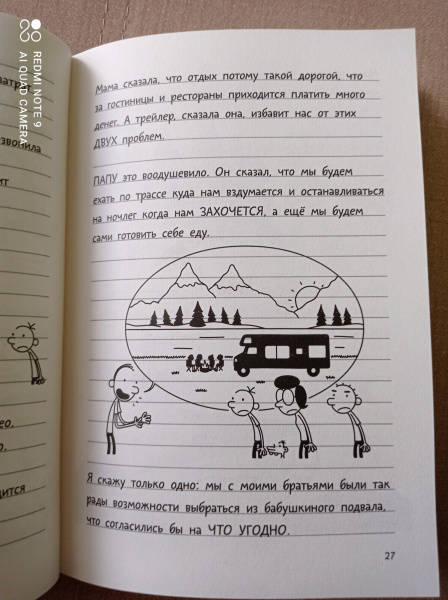 REDMI NOTE 9
AI QUAD CAMERA
Мама сказала, что отдых потому такой дорогой, что
за гостиницы и рестораны приходится платить много
денег. А трейлер, сказала она, избавит нас от этих
ДВУХ проблем.
ПАПУ это воодушевило. Он сказал, что мы будем
ехать по трассе куда нам вздумается и останавливаться
на ночлег когда нам ЗАХОЧЕТСЯ, а ещё мы будем
сами готовить себе еду.
Я скажу только одно: мы с моими братьями были так
рады возможности выбраться из бабушкиного подвала,
что согласились бы на ЧТО УГОДНО.
27